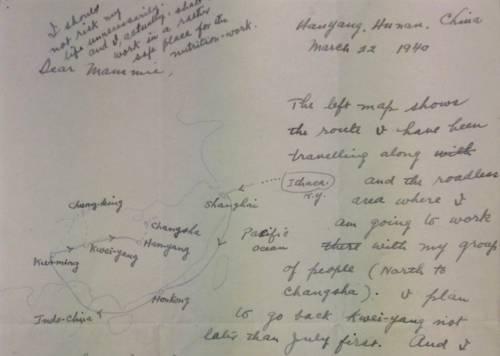 Hanyang, Hunan, China
March 22 1940
Dear Mammie,
The left map shows
the route I have been
travelling along with
and the roadless
area where I
am going to work
there with my group
of people (North to
Changsha). I plan
to go back Kwei-yang not
later than July first. And I
should
not risk my
life unnecessarily.
and I, actually, shall
work in a rather
safe place for the
nutrition-work.
Ithaca.
N.Y.
Shanghai
Chung-king
Changsha
Hanyang
Kwei-yang
Kunming
Pacific
ocean
Honkong
Indo-China